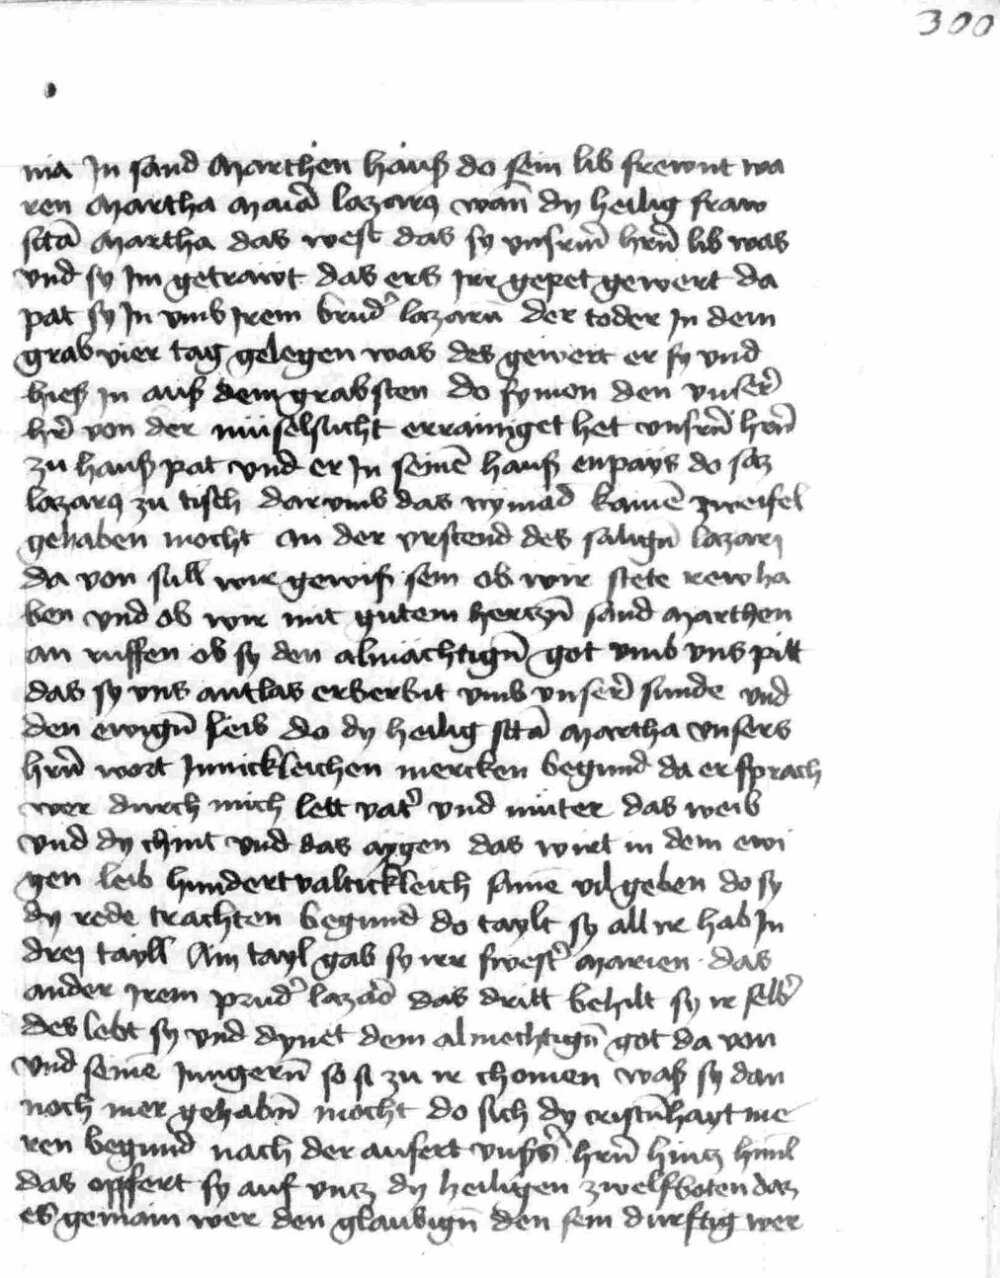 300
nia In sand Marthen hauß do sein lib frewnt wa
ren Martha Maiā lazarꝯ wan̄ dy heilig fraw
sctā Martha das west das sy vnsrm̄ hrn̄ lib was
vnd sy Im getrawt das ers irr gepet gewert da
pat sy In vmb Irem brud̉ lazarū der toder In dem
grab vier tag gelegen was des gewert er sy vnd
hieß In auß dem grab sten do symon den vnser̄
hr̄ von der müselsucht erraniget het vnsrn̄ hrn̄
zu hauß pat vnd er In seinē hauß enpays do saz
lazarꝯ zu tisch dar vmb das nymād kainē zweifel
gehaben mocht an der vrstend des salign̄ lazari
da von süll wir gewiß sein ob wir stete rew ha
ben vnd ob wir mit gutem hertzn̄ sand Marthen
an ruffen ob sy den almächtign̄ got vmb vns pitt
das sy vns antlas erberbit vmb vnser̄ sunde vnd
den ewign̄ leib do dy heilig sctā Martha vnsers
hrn̄ wort Innickleichen mercken begund da er sprach
wer durch mich lett vat̉ vnd müter das weib
vnd dy chint vnd das aygen das wirt in dem ewi
gen leib hundertvaltickleich 
dy rede trachten begund do taylt sy all ir hab In
drej tayll Ain tayl gab sy irr swest̉ Marien das
ander Irem prud̉ lazaō das dritt behilt sy ir selb̉
des lebt sy vnd dynet dem almechtign̄ got da von
vnd seinē Iungern̄ so si zu ir chomen waß sy dan
noch mer gehabn̄ mocht do sich dy cristn̄hayt me
ren begund nach der aufert hrn̄ hintz himl
das opffert sy auf vntz dy heiligen zwelfboten daz
es gemain wer den glaubign̄ den sein durftig wer